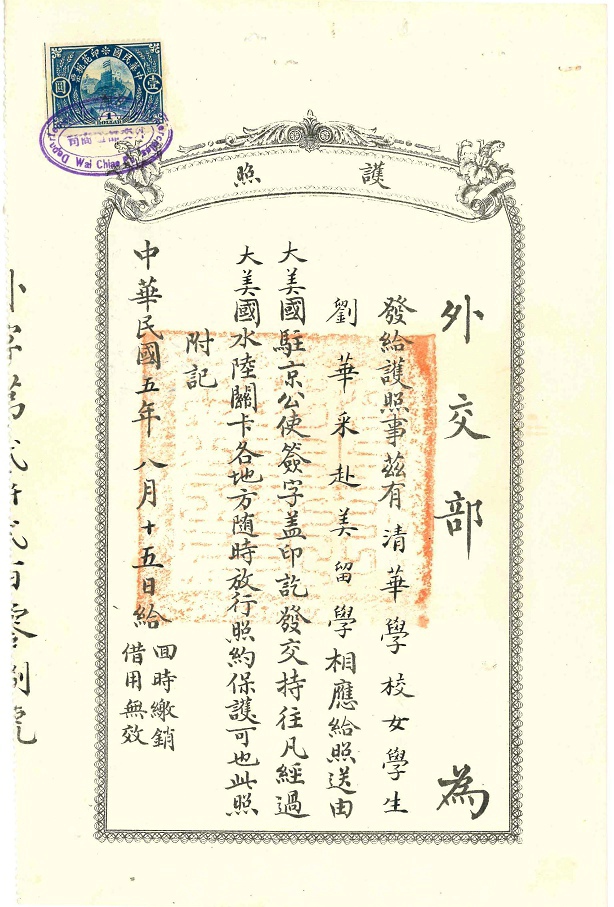 護照
外交部 為
發給護照事茲有清華學校女學生
劉華采赴美留學相應給照送由
大美國駐京公使簽字盖印訖發交持往凡經過
大美國水陸關卡各地方隨時放行照約保護可也此照
附記
中華民國五年八月十五日給
回時繳銷
借用無效
中華民國印花税票
壹圓
1
DOLLAR
Wai Chiao